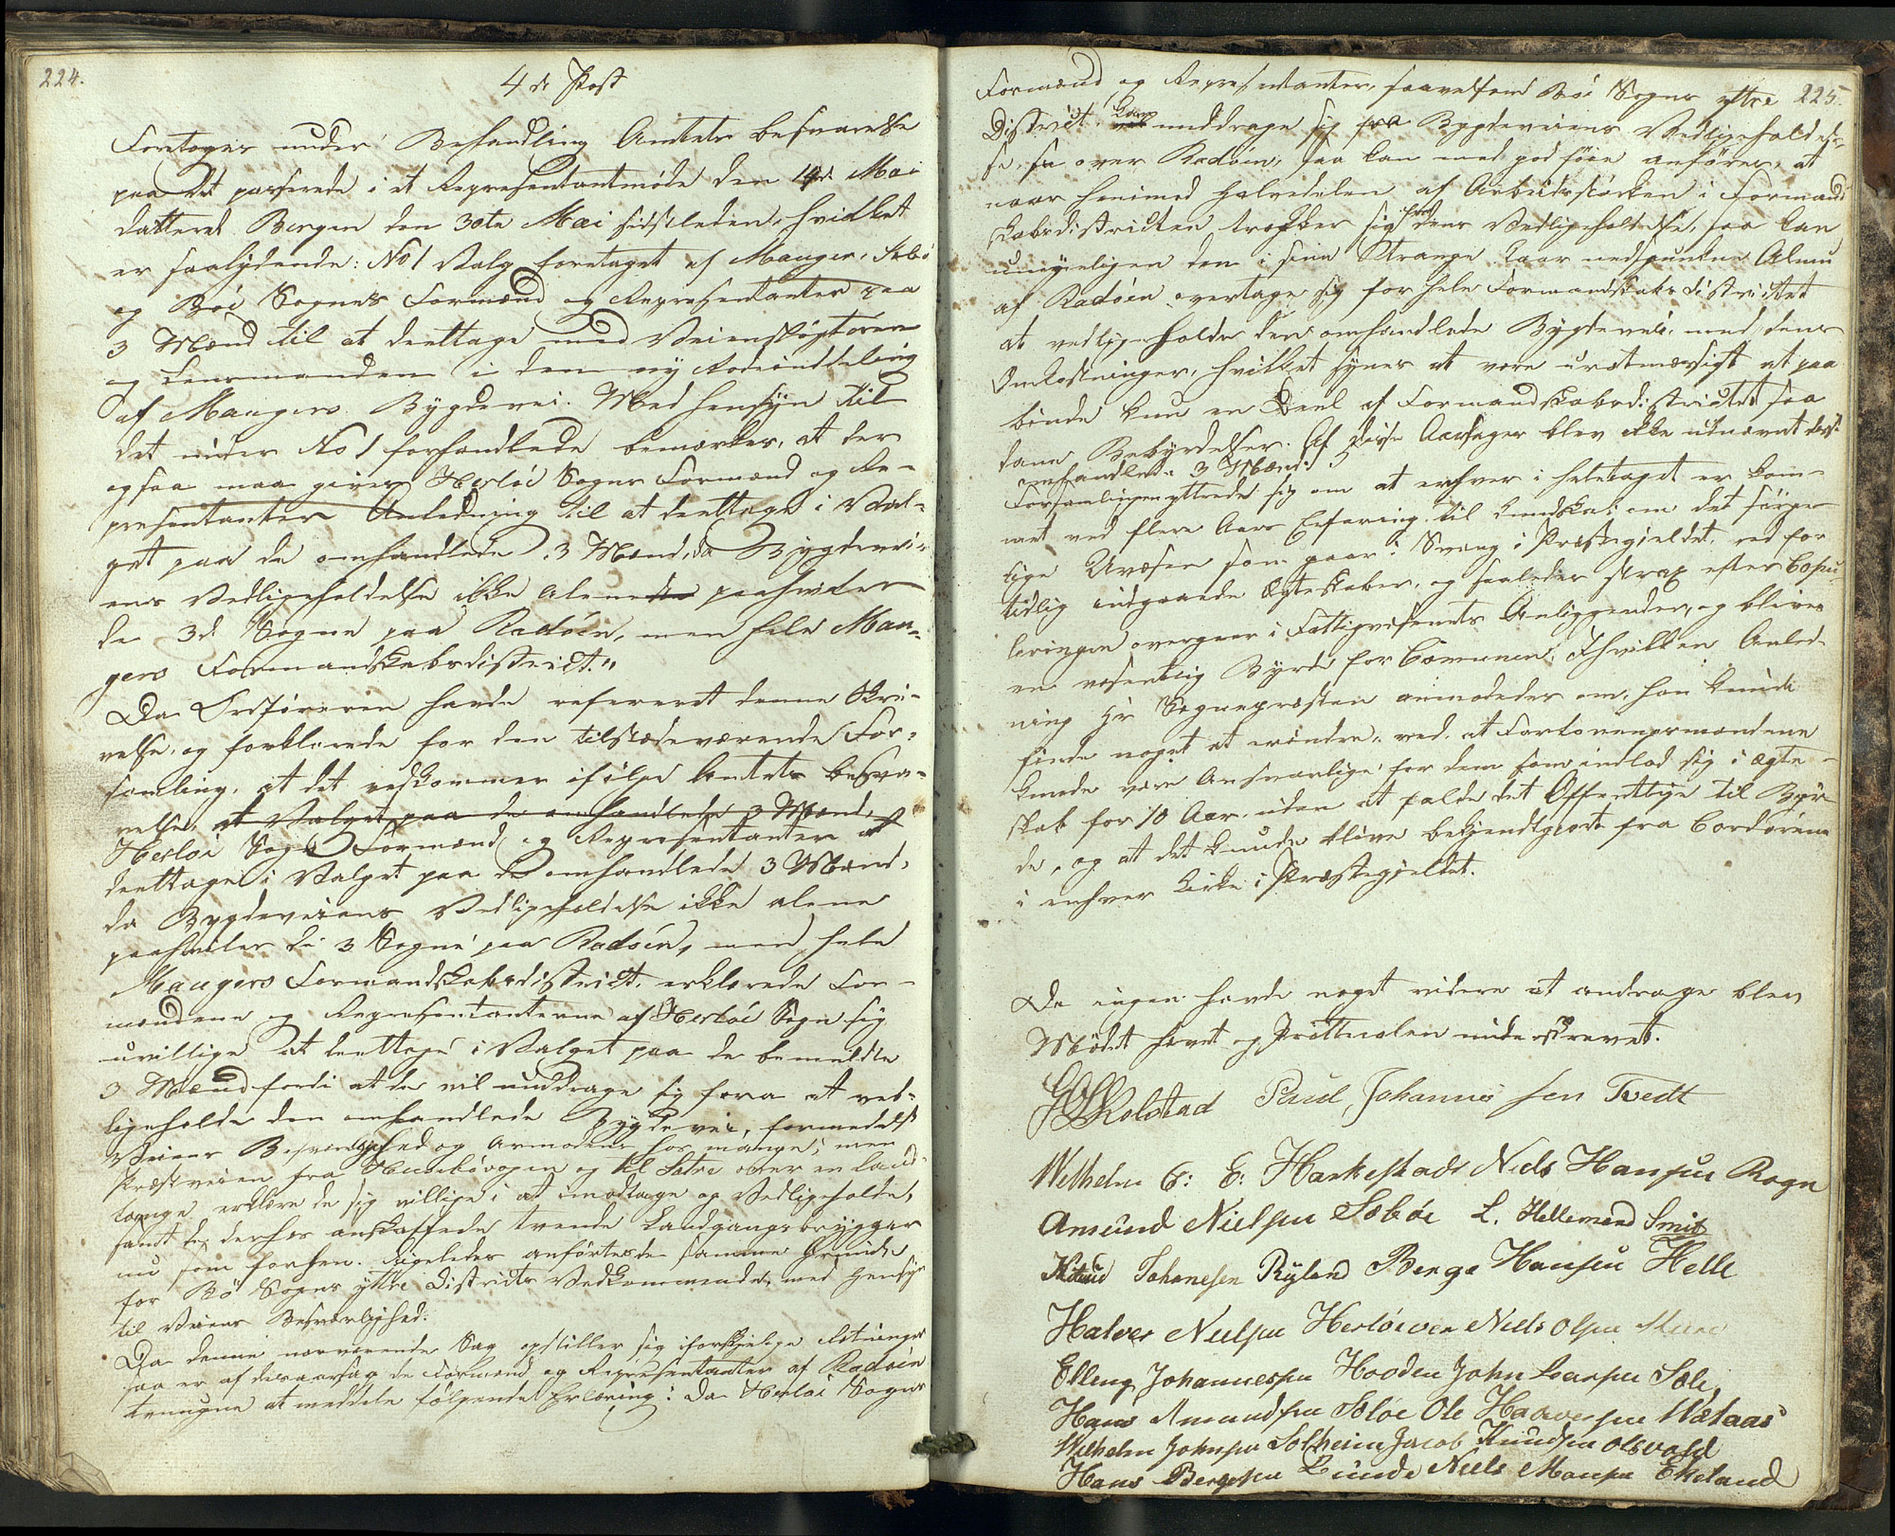 224.
4de Post
Foretoges under Behandling Amtets besvarelse
paa det passerede i et Representantmøde den 14de Mai
datteret Bergen den 30te Mai sidstleden, hvilket
er saalydende: No 1 Valg foretaget af Manger, Sæbø
og Bøe Sognes Formænd og Representanter paa
3 Mænd til at deeltage med Veiinspigtøren
og Lensmanden i den ny Rodeinddeling
af Mangers Bygdevei. Med hensyn til
det under No 1 forhandlede bemærkes, at der
ogsaa maa gives Herløe Sogns Formænd og Re-
presentanter Anledning til at deeltage i Val-
get paa de omhandlede 3 Mænd, da Bygdevei-
ens Vedligeholdelse ikke alene paahviler
de 3de Sogne paa Radøen, men hele Man-
gers Formandskabsdistrict."
Da Ordføreren havde refereret denne Skri-
velse, og forklarede for den tilstædeværende For-
samling, at det vedkommer ifølge Amtets besva-
relse, at Valget paa de omhandlede 3 Mænd, af
Herløe Sogns Formænd og Representanter at
deeltage i Valget paa de omhandlede 3 Mænd,
da Bygdeveiens Vedligeholdelse ikke alene
paahviler de 3 Sogne paa Radøen, men hele
Mangers Formandskabsdistrict, erklærede For-
mændene og Representanterne af Herløe Sogn sig
uvillige at deeltage i Valget paa de bemeldte
3 Mænd fordi at de vil unddrage sig fora at ved-
ligeholde den omhandlede Bygdevei, formedelst
Veiens Besværlighed og Armodens hos mange; men
Præstveien fra og til Sætre over en Land-
tange erklære de sig villige i at imodtage og Vedligeholde,
samt de derhos anskaffede tvende Landgangsbrygger
nu som forhen. Ligeledes anførtes de samme Grunde
for Bø Sogns yttre Districts Vedkommende, med Hensyn
til Veiens Besværlighed.
Da denne nærværende Sag opstiller sig i forskjelige Retninger
saa er af deraarsag de Formænd og Representanter af Radøen
tvungne at meddele følgende Erklæring: Da Herløe Sogns
225.
Formænd og Representanter, saavelsom Bøe Sogns yttre
District, kan unddrage sig fra Bygdeveiens Vedligeholdel-
se, over Radøen, saa kan med god føie anføres, at
naar henimod Halvedelen af Arbeidsstokken i Formand
skabsdistricten trækker sig fra dens Vedligeholdelse, saa kan
umyeligen den i sine Trange kaar nedsunkne Almu
af Radøen overtage sig for hele Formandskabs districtet
at vedligeholde den omhandlede Bygdevei, med dens
Omkostninger, hvilket synes at være uretmæssigt at paa
binde kun en Deel af Formandskabsdistrictet saa
danne Bebyrdelser. Af disse Aarsager blev ikke udnævnt desse
omhandlede 3 Mænd.
Forsamlingen yttrede sig om at enhver i heletaget er kom-
met ved flere Aars Erfaring til kundskab om det sørge
lige Uvæsen som gaar i Svang i Præstegjeldet, ved for
tidlig indgaaede Ægteskaber, og saaledes strax efter Copu
leringen overgaar i Fattigvæsenets Anliggender, og bliver
en væsentlig Byrde for Comunen, i hvilken Anled-
ning Hr Sognepræsten anmodedes om, han kunde
finde noget at erindre, ved at Forlovningsmændene
kunde være Ansvarlige for dem som indlod sig i ægte-
skab for 10 Aar uden at falde det Offentlige til Byr-
de, og at det kunde blive bekjendtgjort fra Cordøren
i enhver Kirke i Præstegjeldet.
Da ingen havde noget videre at andrage blev
Mødet hævet og Prottocolen underskrevet.
Kolstad Poul Johannes sen Tvedt
Wilhelm G: E: Harkestad Niels Hansen Rogn
Amund Nielsen Sæbøe L. Hellemend Smit
Knud Johanesen Ryland Berge Hansen Helle
Halver Nielsen Herløevær Niels Olsen
Elling Johannessen Hooden John Larsen Sæle
Hans Amundsen Sæbøe Ole Haaversen Wetaas
Wilhelm Johnsen Solheim Jacob Knudsen Olsvold
Hans Bergesen Lunde Niels Monsen Ekeland